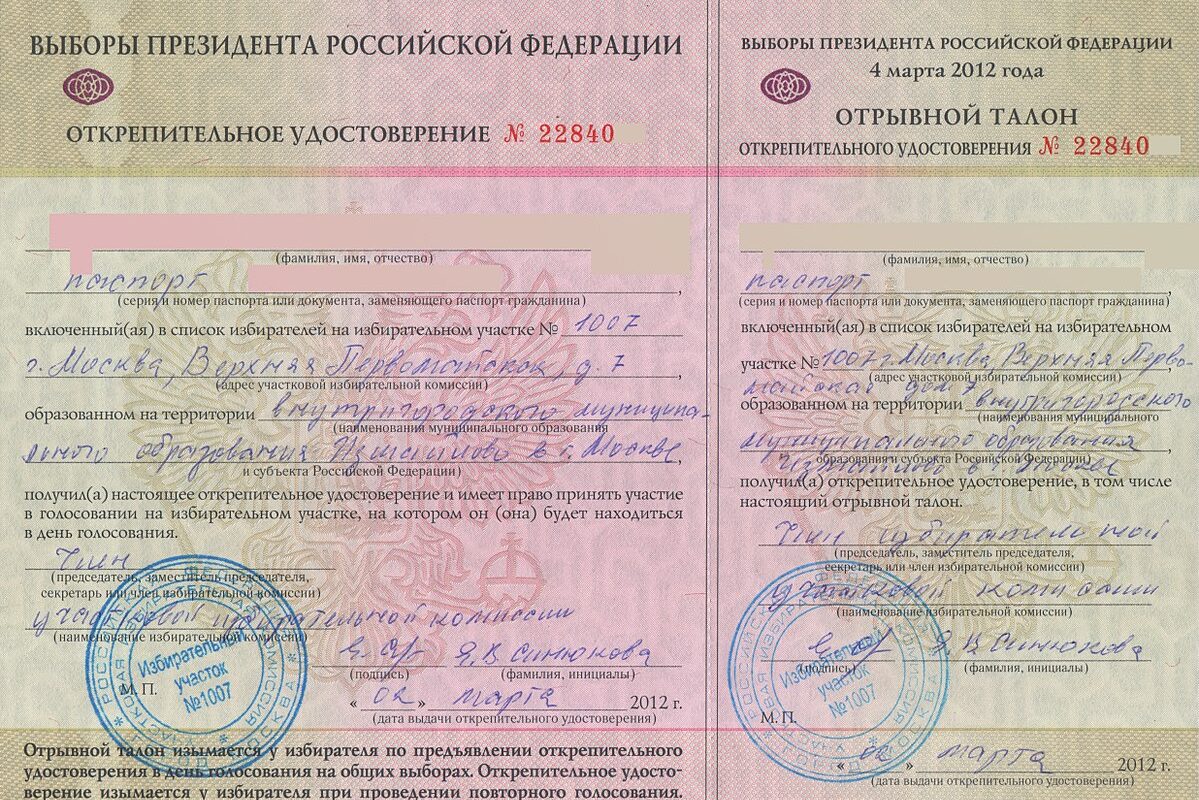 ВЫБОРЫ ПРЕЗИДЕНТА РОССИЙСКОЙ ФЕДЕРАЦИИ
ОТКРЕПИТЕЛЬНОЕ УДОСТОВЕРЕНИЕ № 22840
(фамилия, имя, отчество)
паспорт
,
(серия и номер паспорта или документа, заменяющего паспорт гражданина)
включенный(ая) в список избирателей на избирательном участке № 1007
г. Москва, Верхняя Первомайская, д. 7,
(адрес участковой избирательной комиссии)
образованном на территории внутригородского муниципа-
(наименования муниципального образования
льного образования Измайлово в г. Москве,
и субъекта Российской Федерации)
получил(а) настоящее открепительное удостоверение и имеет право принять участие
в голосовании на избирательном участке, на котором он (она) будет находиться
в день голосования.
Член
(председатель, заместитель председателя,
секретарь или член избирательной комиссии)
участковой избирательной комиссии
(наименование избирательной комиссии)
Я.В. Синюкова
(подпись) (фамилия, инициалы)
М. П.
« 02 » марта 2012 г.
(дата выдачи открепительного удостоверения)
Избирательный
участок
№1007
Отрывной талон изымается у избирателя по предъявлении открепительного
удостоверения в день голосования на общих выборах. Открепительное удосто-
верение изымается у избирателя при проведении повторного голосования.
ВЫБОРЫ ПРЕЗИДЕНТА РОССИЙСКОЙ ФЕДЕРАЦИИ
4 марта 2012 года
ОТРЫВНОЙ ТАЛОН
ОТКРЕПИТЕЛЬНОГО УДОСТОВЕРЕНИЯ № 22840
(фамилия, имя, отчество)
паспорт
,
(серия и номер паспорта или документа, заменяющего паспорт гражданина)
включенный(ая) в список избирателей на избирательном
участке № 1007 г. Москва, Верхняя Перво-
(адрес участковой избирательной комиссии)
майская дом 7
образованном на территории внутригородского
(наименования муниципального
муниципального образования
образования и субъекта Российской Федерации)
Измайлово в г. Москве
получил(а) открепительное удостоверение, в том числе
настоящий отрывной талон.
Член избирательной
(председатель, заместитель председателя,
секретарь или член избирательной комиссии)
участковой комиссии
(наименование избирательной комиссии)
Я.В. Синюкова
(подпись) (фамилия, инициалы)
М. П.
Избирательный
участок
№1007
« 02 » марта 2012 г.
(дата выдачи открепительного удостоверения)